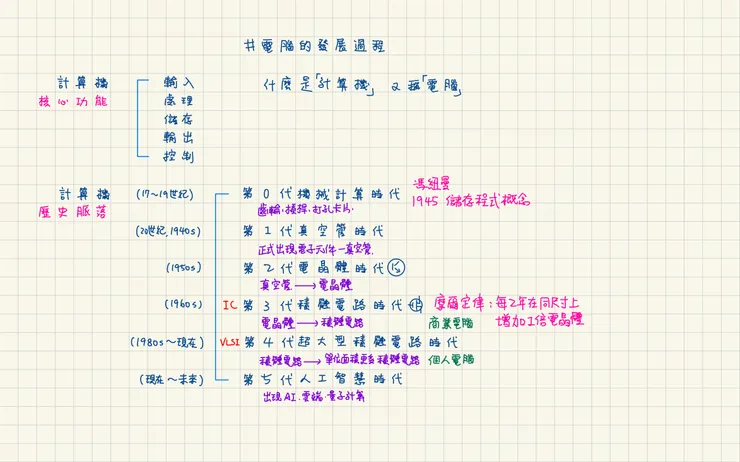 #電腦的發展過程
什麼是「計算機」 又稱「電腦」
計算機
核心功能
輸入
處理
儲存
輸出
控制
計算機
歷史脈落
(17～19世紀) 第0代機械計算時代
齒輪、槓桿、打孔卡片.
馮紐曼
1945 儲存程式概念
(20世紀,1940s) 第1代真空管時代
正式出現電子元件－真空管.
(1950s) 第2代電晶體時代
真空管→電晶體
(1960s) IC 第3代積體電路時代
電晶體→積體電路 商業電腦
摩爾定律：每2年在同尺寸上
增加1倍電晶體
(1980s～現在) VLSI 第4代超大型積體電路時代
積體電路→單位面積更多積體電路 個人電腦
(現在～未來) 第5代人工智慧時代
出現AI、雲端、量子計算